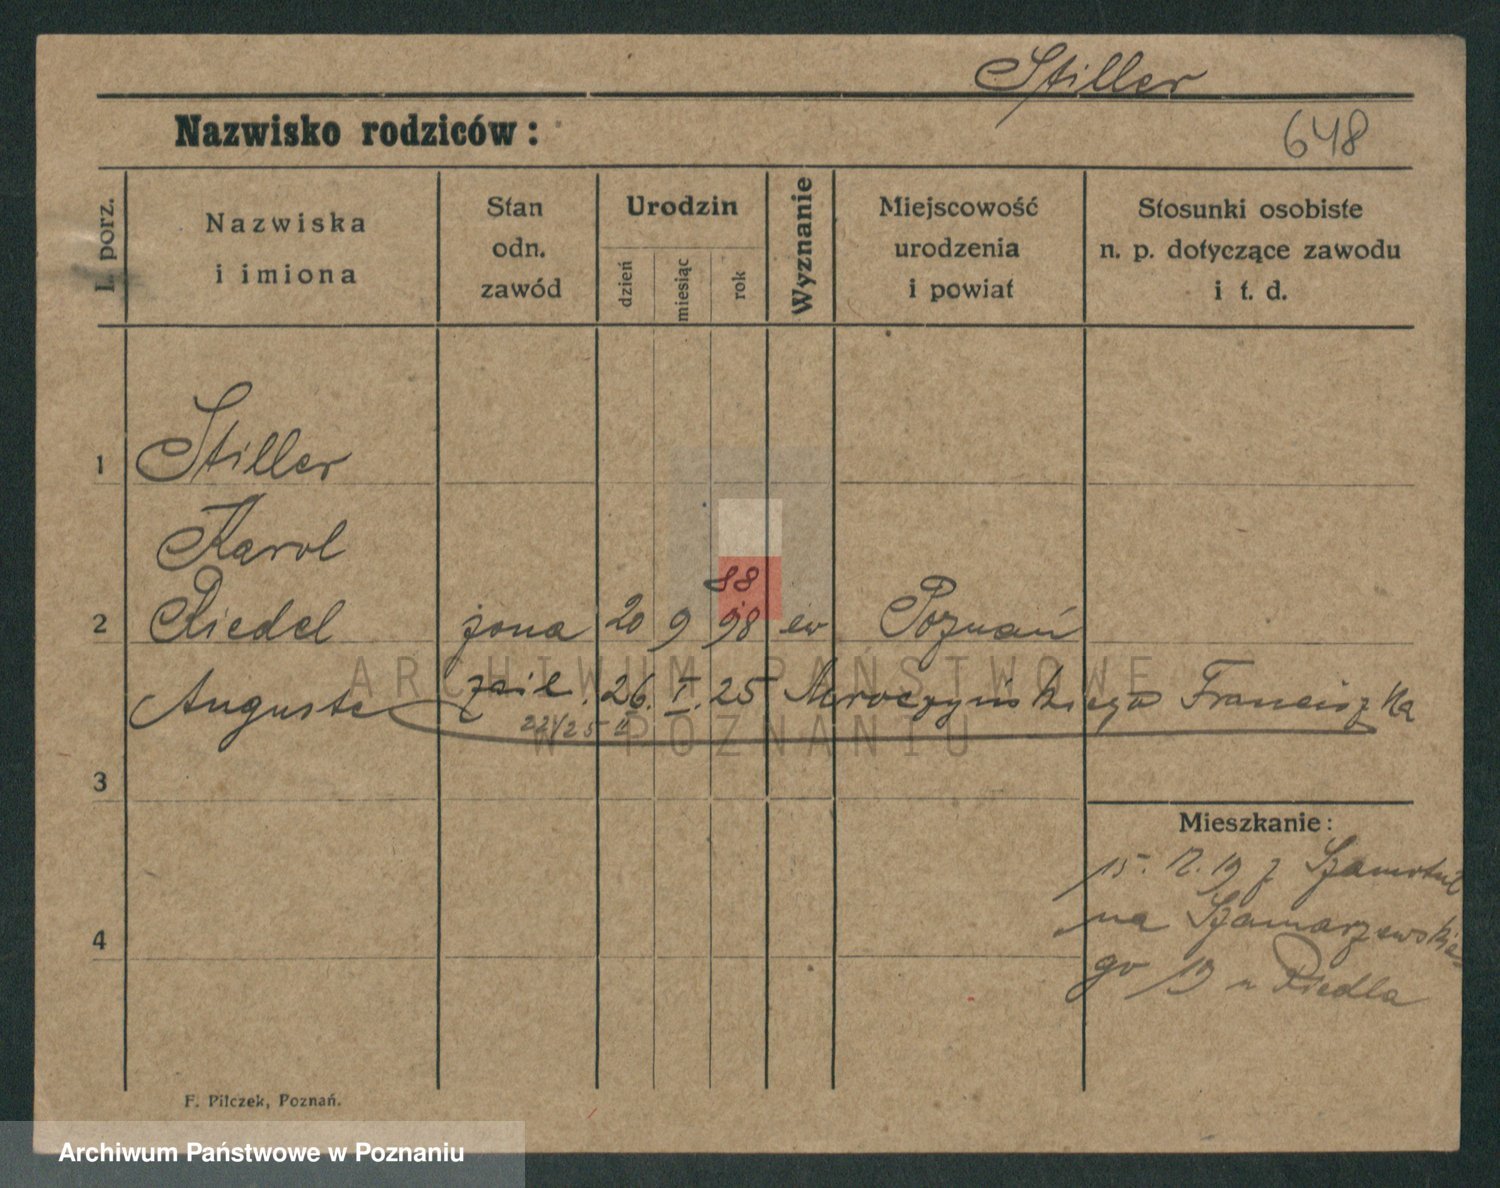 Stiller
Nazwisko rodziców:
648
L. porz.
Nazwiska
i imiona
Stan
odn.
zawód
Urodzin
dzień
miesiąc
rok
Wyznanie
Miejscowość
urodzenia
i powiat
Stosunki osobiste
n. p. dotyczące zawodu
i t. d.
1
Stiller
Karol
88
2 Riedel żona 20 9 98 ew Poznań
Auguste 26. I. 25 Mroczyńskiego Franciszka
ARCHIWUM PAŃSTWOWE
W POZNANIU
3
Mieszkanie:
15. 12. 19 z Szamotuł
na Szamarzewskie-
4
go 19 u Riedla
F. Pilczek, Poznań.
Archiwum Państwowe w Poznaniu